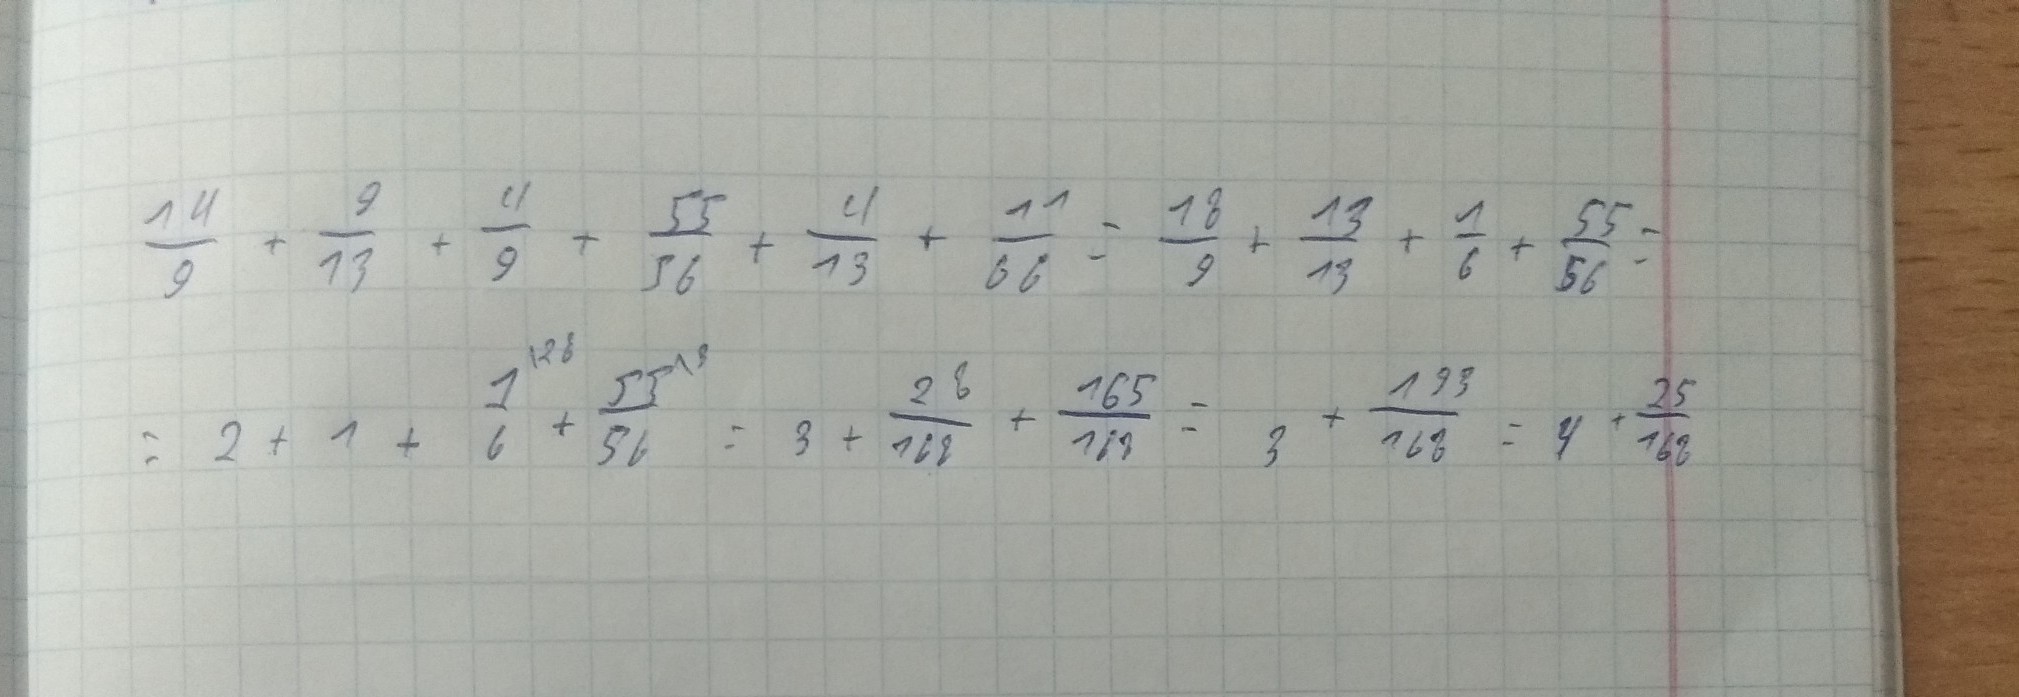 14/9 + 9/13 + 4/9 + 55/56 + 4/13 + 11/66 = 18/9 + 13/13 + 1/6 + 55/56 =
= 2 + 1 + 1\28/6 + 55\3/56 = 3 + 28/168 + 165/168 = 3 + 193/168 = 4 + 25/168